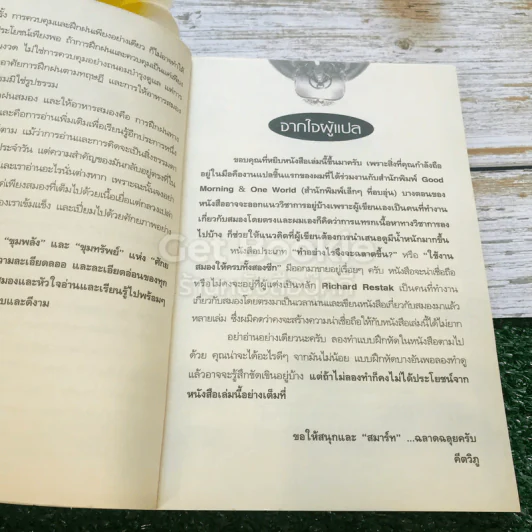 รั้ง การควบคุมและฝึกฝนเพียงอย่างเดียว ก็ไม่อาจทำให้
ประโยชน์เพียงพอ ถ้าการฝึกฝนและควบคุมเป็นแต่เพียง
งวด ไม่ใช่การควบคุมอย่างถนอมบำรุงดูแล
อาศัยการฝึกฝนตามทฤษฎี และการให้อาหารสมอง
มมีใช่รูปธรรม
กฝนสมอง และให้อาหารสมองคือ การฝึกฝน
และคือการอ่านเพิ่มเติมเพื่อเรียนรู้อีกประการหนึ่ง
ตาม แม้ว่าการอ่านและการคิดจะเป็นสิ่งธรรมดา
ประจำวัน แต่ความสำคัญของมันกลับอยู่ตรงที่ใน
และเราอ่านอะไรนั่นต่างหาก เพราะฉะนั้น
ต่เพียงสมองที่เต็มไปด้วยเนื้อเยื่อ
องเราเข้มแข็ง และเปี่ยมไปด้วยศักยภาพอย่าง
"ขุมพลัง" และ "ขุมทรัพย์" แห่ง
วามละเอียดลออ และละเอียดอ่อนของทุก
มองและหัวใจอ่านและเรียนรู้ไปพร้อมๆ
บและดีงาม
จากใจผู้แปล
ขอบคุณที่หยิบหนังสือเล่มนี้ขึ้นมาครับ เพราะสิ่งที่คุณกำลังถือ
อยู่ในมือคืองานแปลชิ้นแรกของผมที่ได้ร่วมงานกับสำนักพิมพ์ Good
Morning & One World (สำนักพิมพ์เล็กๆ ที่อบอุ่น) บางตอนของ
หนังสืออาจจะออกแนววิชาการอยู่บ้างเพราะผู้เขียนเองเป็นคนที่ทำงาน
เกี่ยวกับสมองโดยตรงและผมเองก็คิดว่าการแทรกเนื้อหาทางวิชาการลง
ไปบ้าง ก็ช่วยให้แนวคิดที่ผู้เขียนต้องการนำเสนอดูมีน้ำหนักมากขึ้น
หนังสือประเภท "ทำอย่างไรจึงจะฉลาดขึ้น?" หรือ "ใช้งาน
สมองให้ครบทั้งสองซีก" มีออกมาขายอยู่เรื่อยๆ ครับ หนังสือจะน่าเชื่อถือ
หรือไม่คงจะอยู่ที่ผู้แต่งเป็นหลัก Richard Restak เป็นคนที่ทำงาน
เกี่ยวกับสมองโดยตรงมาเป็นเวลานานและเขียนหนังสือเกี่ยวกับสมองมาแล้ว
หลายเล่ม ซึ่งผมคิดว่าคงจะสร้างความน่าเชื่อถือให้กับหนังสือเล่มนี้ได้ไม่ยาก
อย่าอ่านอย่างเดียวนะครับ ลองทำแบบฝึกหัดในหนังสือตามไป
ด้วย คุณน่าจะได้อะไรดีๆ จากมันไม่น้อย แบบฝึกหัดบางอันพอลองทำดู
แล้วอาจจะรู้สึกขัดเขินอยู่บ้าง แต่ถ้าไม่ลองทำก็คงไม่ได้ประโยชน์จาก
หนังสือเล่มนี้อย่างเต็มที่
ขอให้สนุกและ "สมาร์ท" ...ฉลาดฉลุยครับ
คีตวิภู